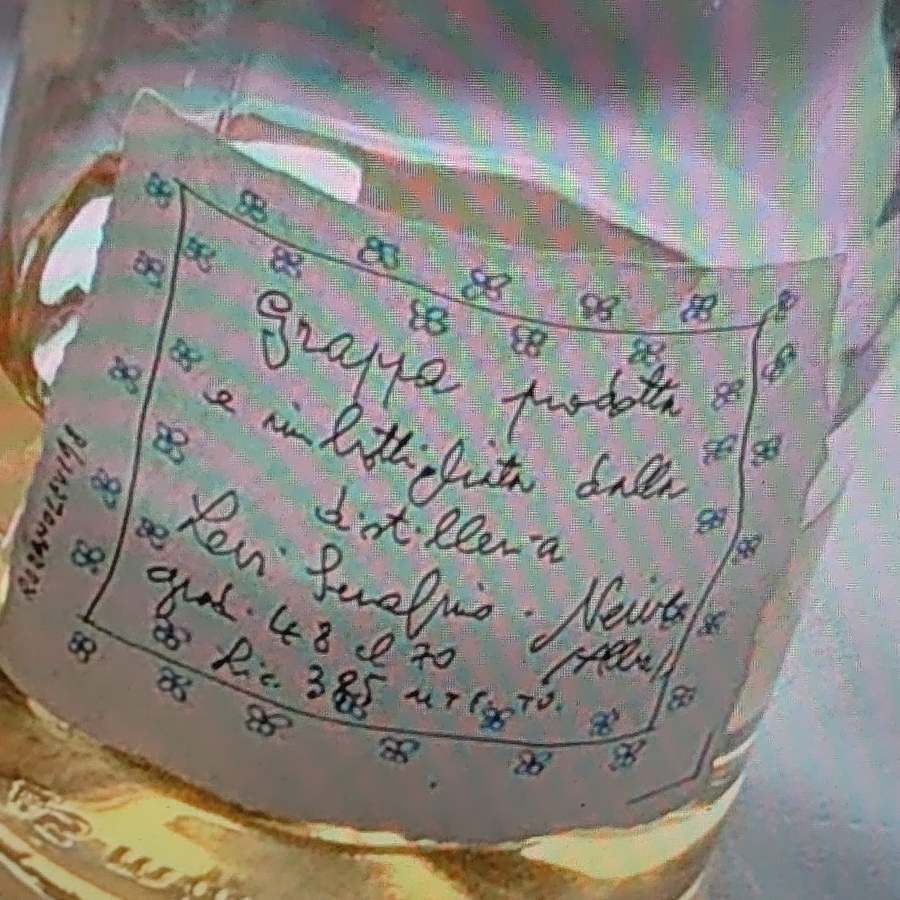 Grappa prodotta
e imbottigliata dalla
distilleria
Levi Serafino. Neive
grad. 48 cl 70 (Alba)
Lic. 385 UTF. TO.